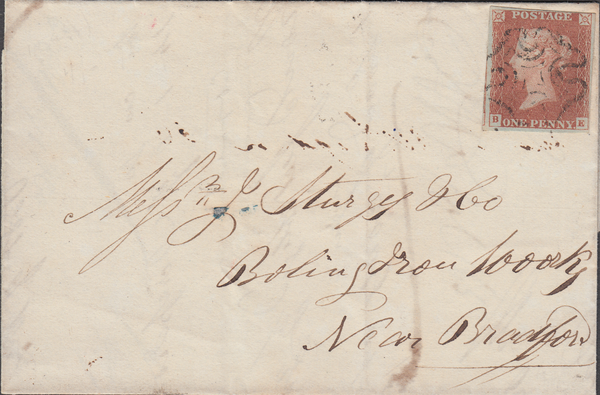 POSTAGE
B ONE PENNY E
Messrs J. Sturges & Co
Boling Iron Works
Near Bradford